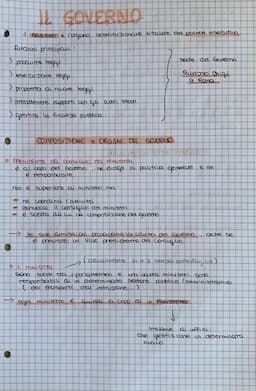 IL GOVERNO
Il GOVERNO è l'organo costituzionale titolare del potere esecutivo
Funzioni principali:
produrre leggi
esecuzione leggi
proposta di nuove leggi
intrattenere rapporti con gli altri stati
gestire la finanza pubblica
sede del Governo
Palazzo Chigi
a Roma
COMPOSIZIONE e ORGANI del GOVERNO
PRESIDENTE DEL CONSIGLIO DEI MINISTRI
è a capo del Governo, ne dirige la politica generale e ne
è responsabile.
non è superiore ai ministri ma:
ne coordina l'attività
convoca il consiglio dei ministri
è scelta da lui la composizione del governo
Le sue dimissioni provocano la caduta del Governo, oltre lui
è previsto un vice presidente del Consiglio.
I MINISTRI
sono scelti tra i parlamentari e una volta ministri sono
responsabili di un determinato settore pubblico/amministrativo
(dei trasporti, dell'istruzione...)
ogni ministro è quindi a capo di un MINISTERO
insieme di uffici
che gestiscono un determinato